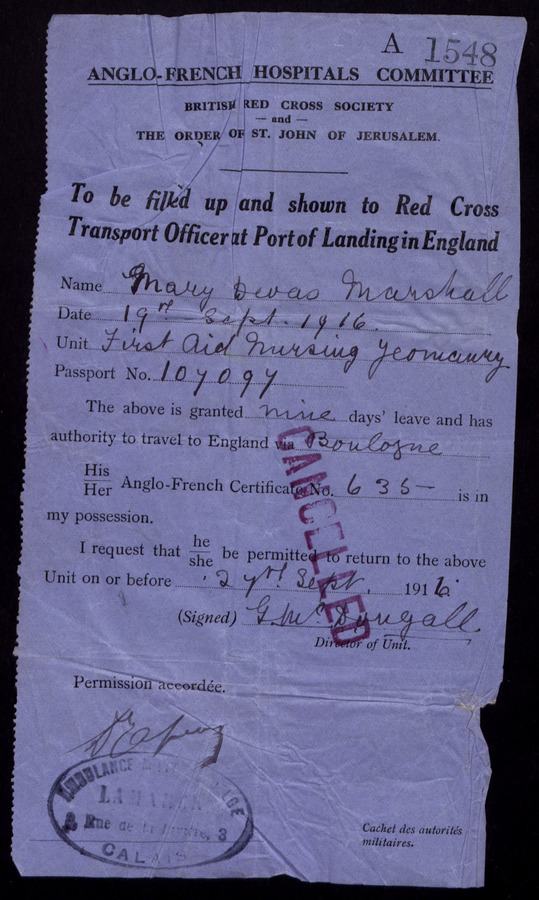 A 1548
ANGLO-FRENCH HOSPITALS COMMITTEE
BRITISH RED CROSS SOCIETY
— and —
THE ORDER OF ST. JOHN OF JERUSALEM.
To be filled up and shown to Red Cross
Transport Officer at Port of Landing in England
Name Mary Devas Marshall
Date 19th Sept. 1916.
Unit First Aid Nursing Yeomanry
Passport No. 107097
The above is granted nine days' leave and has
authority to travel to England via Boulogne
His
Her Anglo-French Certificate No. 635 is in
my possession.
I request that he
she be permitted to return to the above
Unit on or before 27th Sept. 1916
(Signed) G. McDougall
Director of Unit.
CANCELLED
Permission accordée.
AMBULANCE
LAMARCK
Rue de la Rivière, 3
CALAIS
Cachet des autorités
militaires.